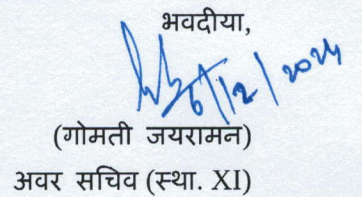 भवदीया,
6/12/2024
(गोमती जयरामन)
अवर सचिव (स्था. XI)